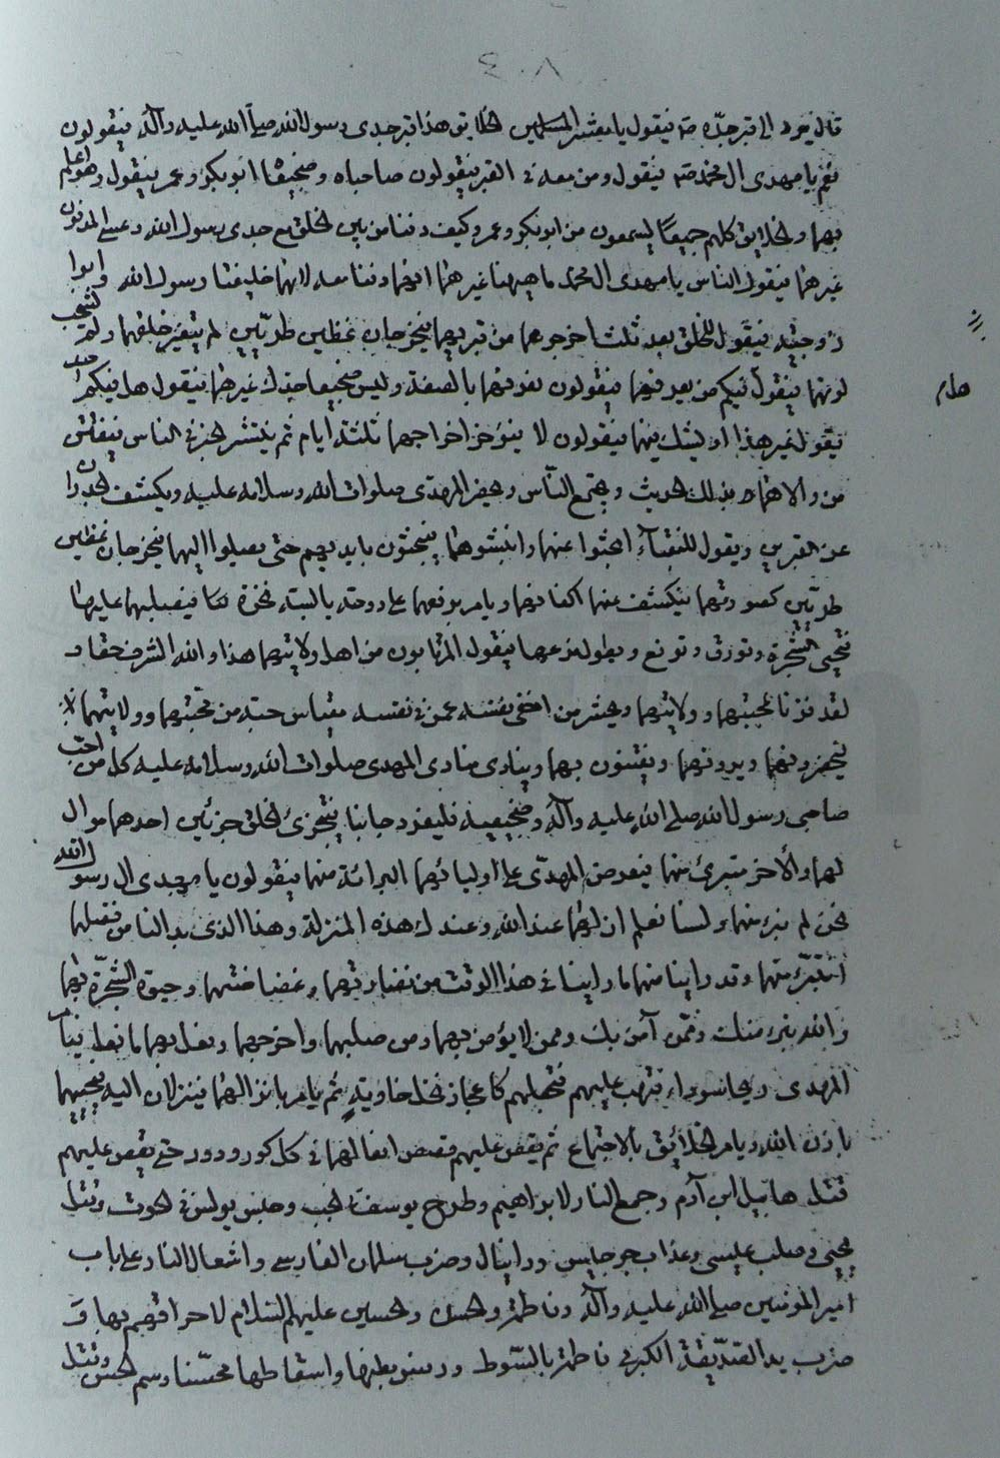 ٨٠٤
قال يرد الى قبر جدّه ص فيقول يا معشر المسلمين الخلايق هذا قبر جدى رسول الله صلى الله عليه وآله فيقولون
نعم يا مهدى ال محمد ص فيقول ومن معه فى القبر فيقولون صاحباه وضجيعاه ابو بكر وعمر فيقول وهو اعلم
بهما والخلايق كلهم جميعًا يسمعون من ابو بكر وعمر وكيف دفنا من بين الخلق مع جدى رسول الله وعسى المدفون
غيرهما فيقول الناس يا مهدى ال محمد ما هيهنا غيرهما انهما دفنا معه لانهما خليفتا رسول الله وابوا
زوجتيه فيقول للخلق بعد ثلث اخرجوهما من قبريهما فيخرجان غضّين طريّين لم يتغير خلقهما ولم يشحب
لونهما فيقول فيكم من يعرفهما فيقولون نعرفهما بالصفة وليس ضجيعا جدك غيرهما فيقول هل فيكم احد
هل م
يقول غير هذا او يشك فيهما فيقولون لا فيؤخر اخراجهما ثلثة ايام ثم ينتشر الخبر فى الناس
من والاهما بذلك الحديث ويجتمع الناس ويحضر المهدى صلوات الله وسلامه عليه ويكشف الجدران
عن القبرين ويقول للنقباء ابحثوا عنهما وانبشوهما فيبحثون بايديهم حتى يصلوا اليهما فيخرجان غضين
طريّين كصورتهما فيكشف عنهما اكفانهما ويامر برفعهما على دوحة يابسة نخرة فيصلبهما عليها
فتحيى الشجرة وتورق وتونع ويطول فرعها فيقول المرتابون من اهل ولايتهما هذا والله الشرف حقا و
لقد فزنا بمحبتهما وولايتهما ويحشر من اخفى نفسه ممن فى نفسه مقياس حبة من محبتهما وولايتهما
فيحضرونهما ويرونهما ويفتنون بهما وينادى منادى المهدى صلوات الله وسلامه عليه كل من احب
صاحبى رسول الله صلى الله عليه وآله وضجيعيه فلينفرد جانبا فيتجزى الخلق جزئين احدهما موال
لهما والآخر متبرئ منهما فيعرض المهدى على اوليائهما البرائة منهما فيقولون يا مهدى ال رسول الله
نحن لم نبرء منهما ولسنا نعلم ان لهما عند الله وعندك هذه المنزلة وهذا الذى بدا لنا من فضلهما
انتبرّء منهما وقد راينا منهما ما راينا فى هذا الوقت من نضارتهما وغضاضتهما وحيوة الشجرة بهما
والله نبرء منك وممن آمن بك وممن لا يؤمن بهما ومن صلبهما واخرجهما وفعل بهما ما فعل فيامر
المهدى ريحا سوداء فتهب عليهم فتجعلهم كاعجاز نخل خاوية ثم يامر بانزالهما فينزلان اليه فيحييهما
باذن الله ويامر الخلائق بالاجتماع ثم يقص عليهم قصص افعالهما فى كل كور ودور حتى يقص عليهم
قتل هابيل ابن آدم وجمع النار لابراهيم وطرح يوسف فى الجب وحبس يونس فى الحوت وقتل
يحيى وصلب عيسى وعذاب جرجيس ودانيال وضرب سلمان الفارسى واشعال النار على باب
امير المؤمنين صلى الله عليه وآله وفاطمة والحسن والحسين عليهم السلام لاحراقهم بها و
ضرب يد الصديقة الكبرى فاطمة بالسوط ورفس بطنها واسقاطها محسنا وسم الحسن وقتل